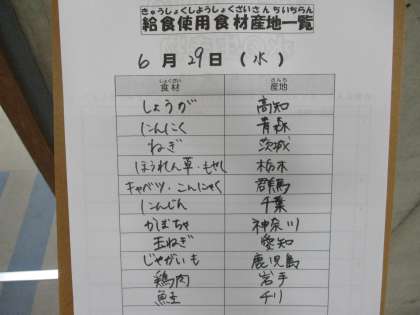 きゅうしょくしようしょくざいさんちいちらん
給食使用食材産地一覧
6月29日(水)
しょくざい さんち
食材 産地
しょうが 高知
にんにく 青森
ねぎ 茨城
ほうれん草・もやし 栃木
キャベツ・こんにゃく 群馬
にんじん 千葉
かぼちゃ 神奈川
玉ねぎ 愛知
じゃがいも 鹿児島
鶏肉 岩手
鮭 チリ